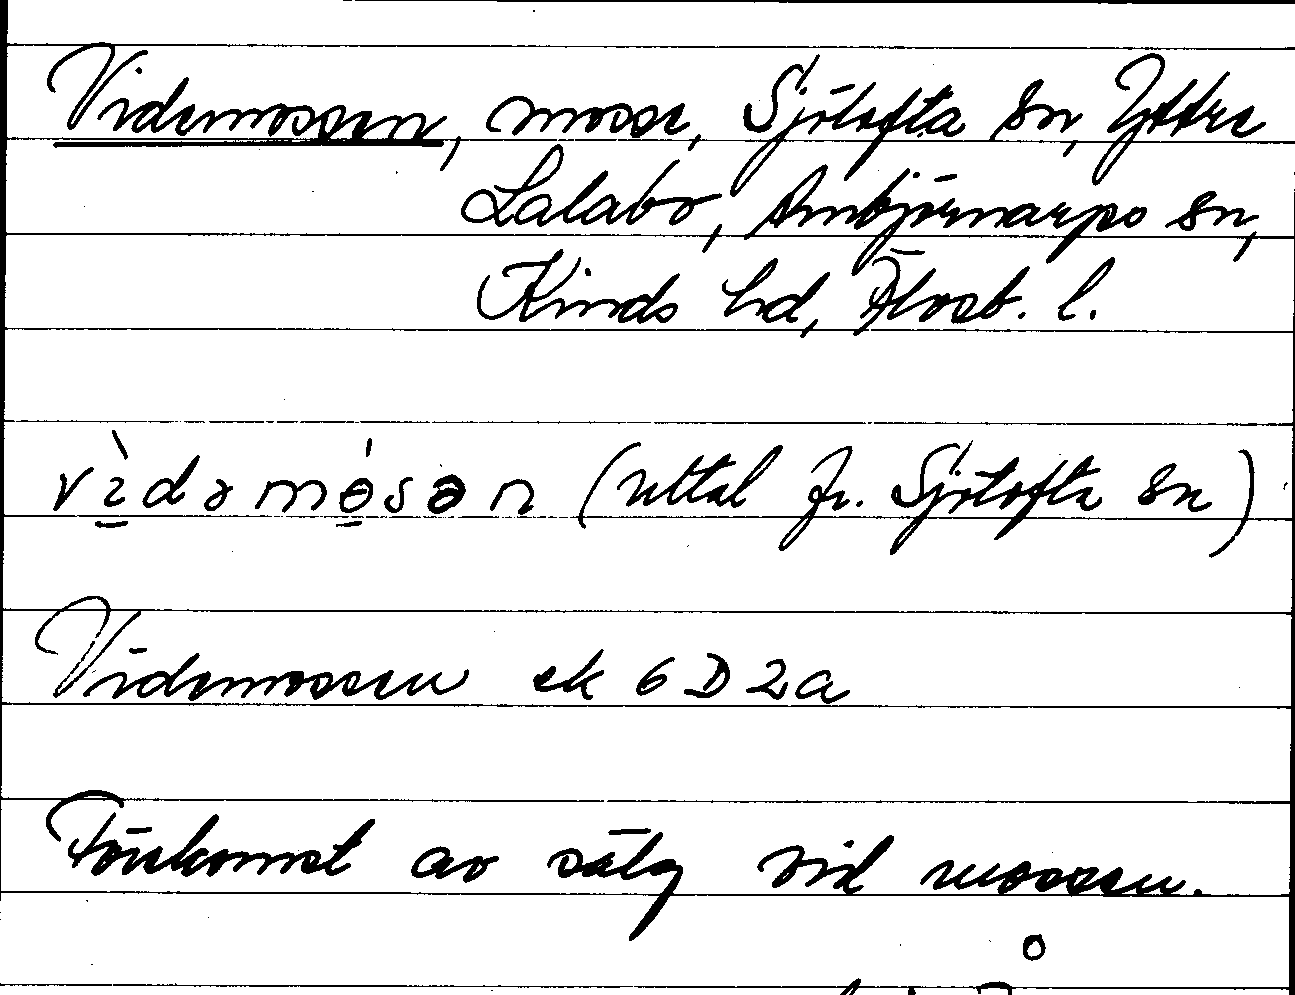 Videmossen, mosse, Sjötofta sn, Yttre
Lalabo, Ambjörnarps sn,
Kinds hd, Älvsb. l.
vìdəmósən (uttal fr. Sjötofta sn)
Videmossen ek 6D2a
Förekomst av sälg vid mossen.